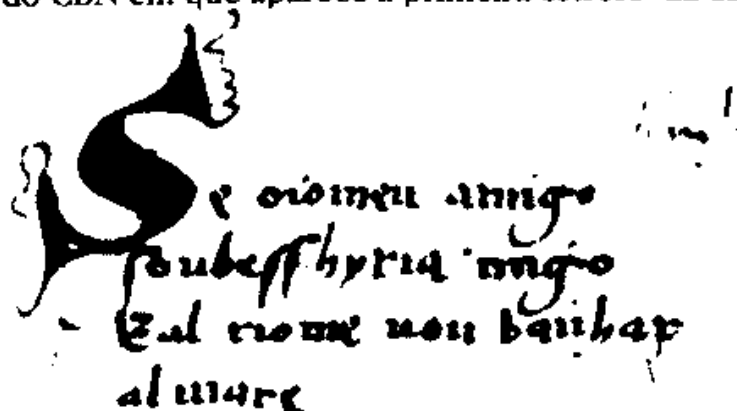 do CBN em que aparece a primeira
Se oiomeu amigo
soubess hyria migo
Eal rio me uou banhar
al mare